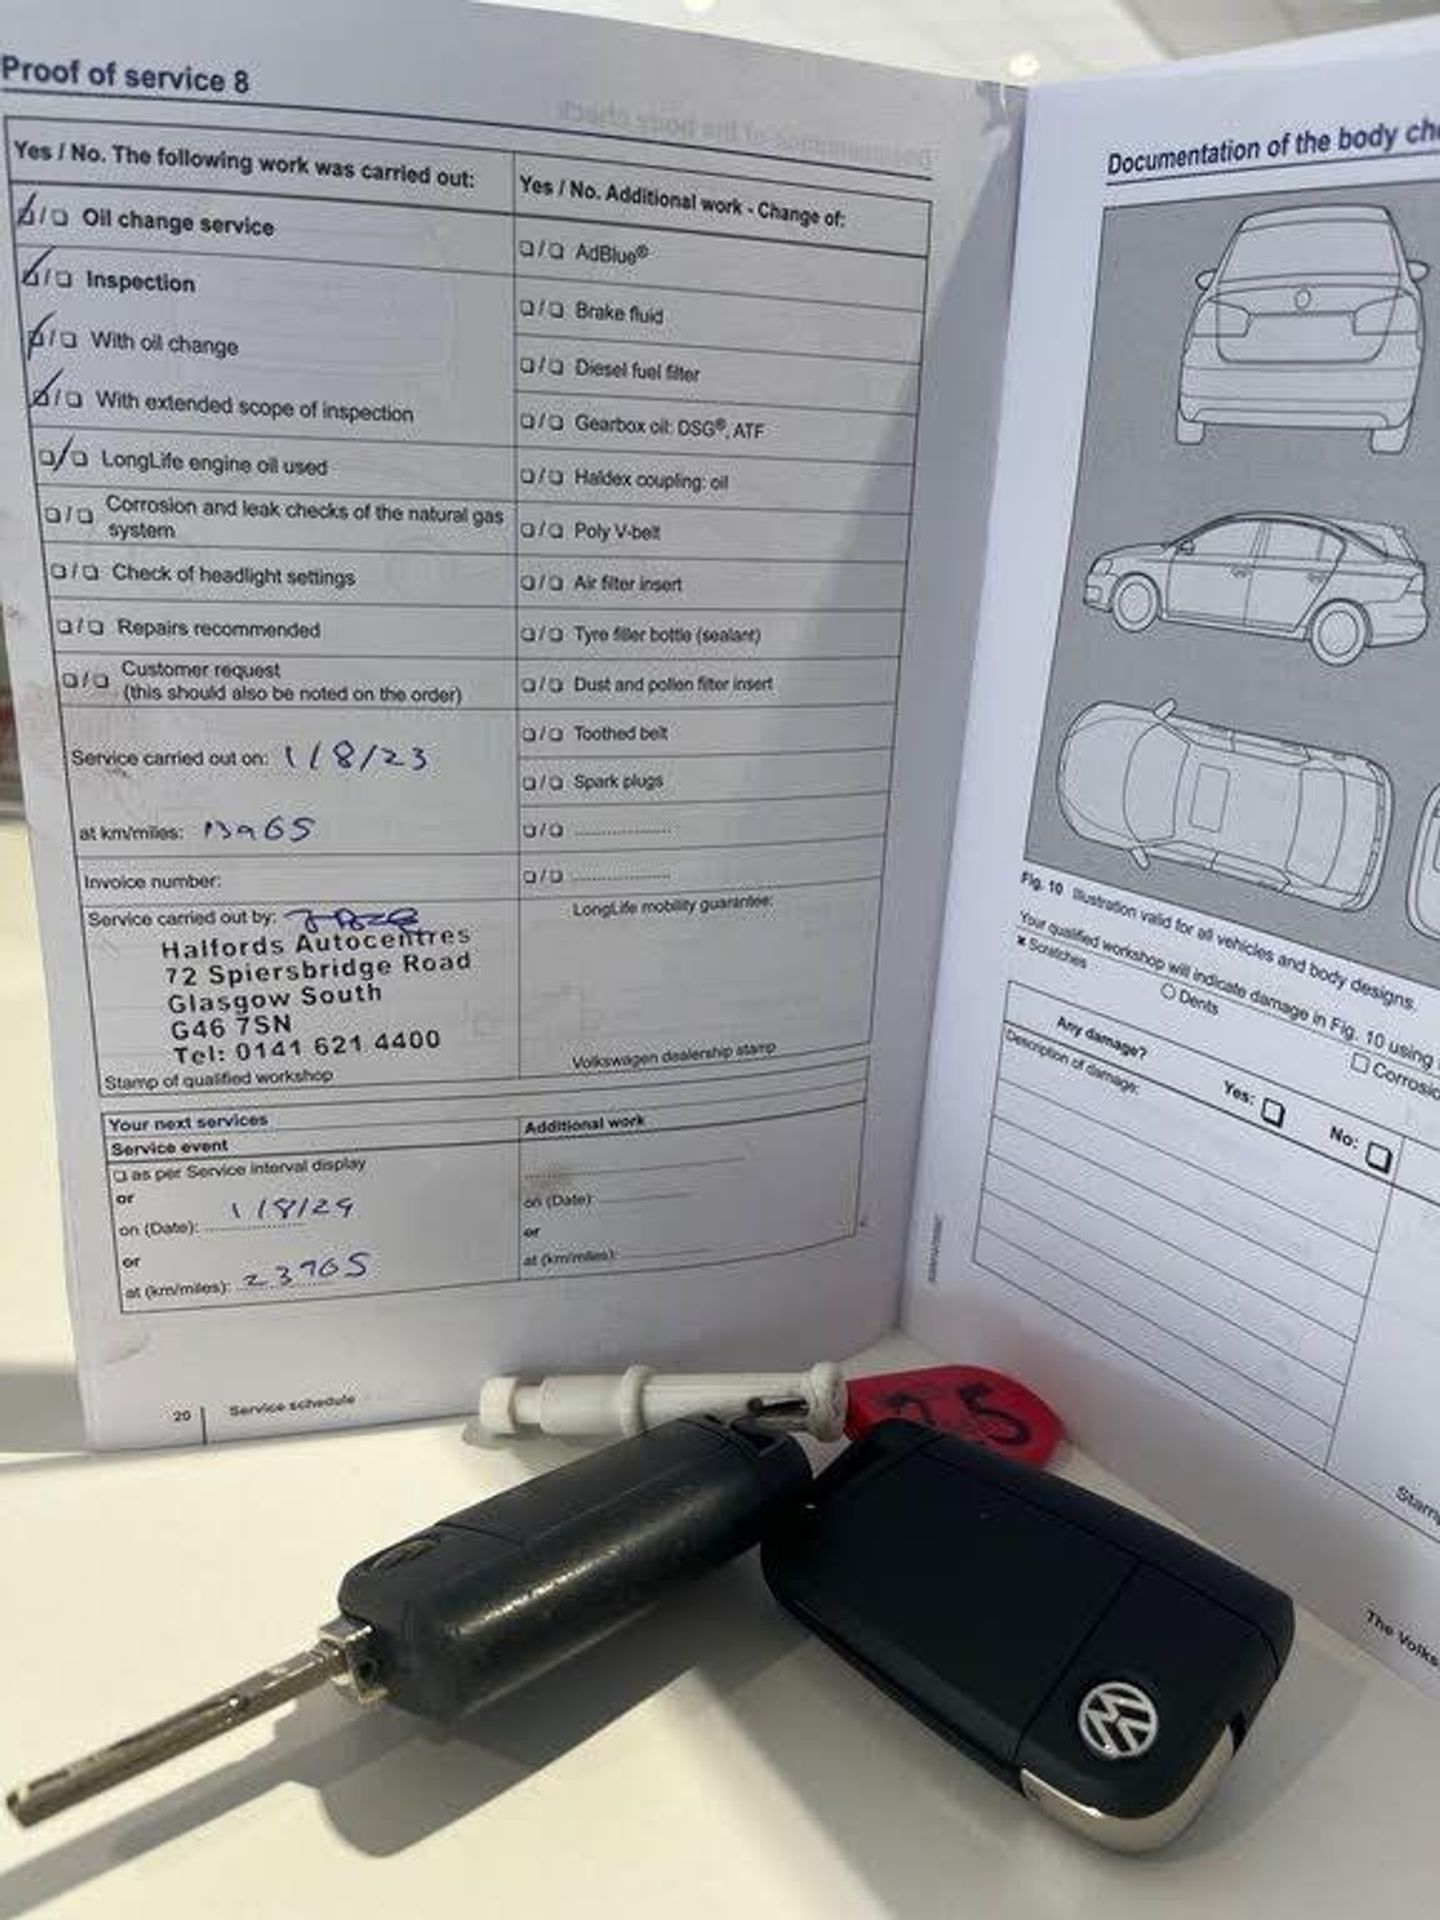 Proof of service 8
Yes / No. The following work was carried out:
Oil change service
Inspection
With oil change
With extended scope of inspection
LongLife engine oil used
Corrosion and leak checks of the natural gas
system
Check of headlight settings
Repairs recommended
Customer request
(this should also be noted on the order)
Service carried out on: 1/8/23
at km/miles: 13965
Invoice number:
Service carried out by:
Halfords Autocentres
72 Spiersbridge Road
Glasgow South
G46 7SN
Tel: 0141 621 4400
Stamp of qualified workshop
Yes / No. Additional work - Change of:
AdBlue®
Brake fluid
Diesel fuel filter
Gearbox oil: DSG®, ATF
Haldex coupling: oil
Poly V-belt
Air filter insert
Tyre filler bottle (sealant)
Dust and pollen filter insert
Toothed belt
Spark plugs
LongLife mobility guarantee:
Volkswagen dealership stamp
Your next services
Service event
as per Service interval display
or
on (Date): 1/8/24
or
at (km/miles): 23965
Additional work
on (Date):
or
at (km/miles):
20 Service schedule
Documentation of the body
Fig. 10 Illustration valid for all vehicles and body designs.
Your qualified workshop will indicate damage in Fig. 10 using
Scratches
Dents
Any damage?
Yes:
No:
Description of damage:
The